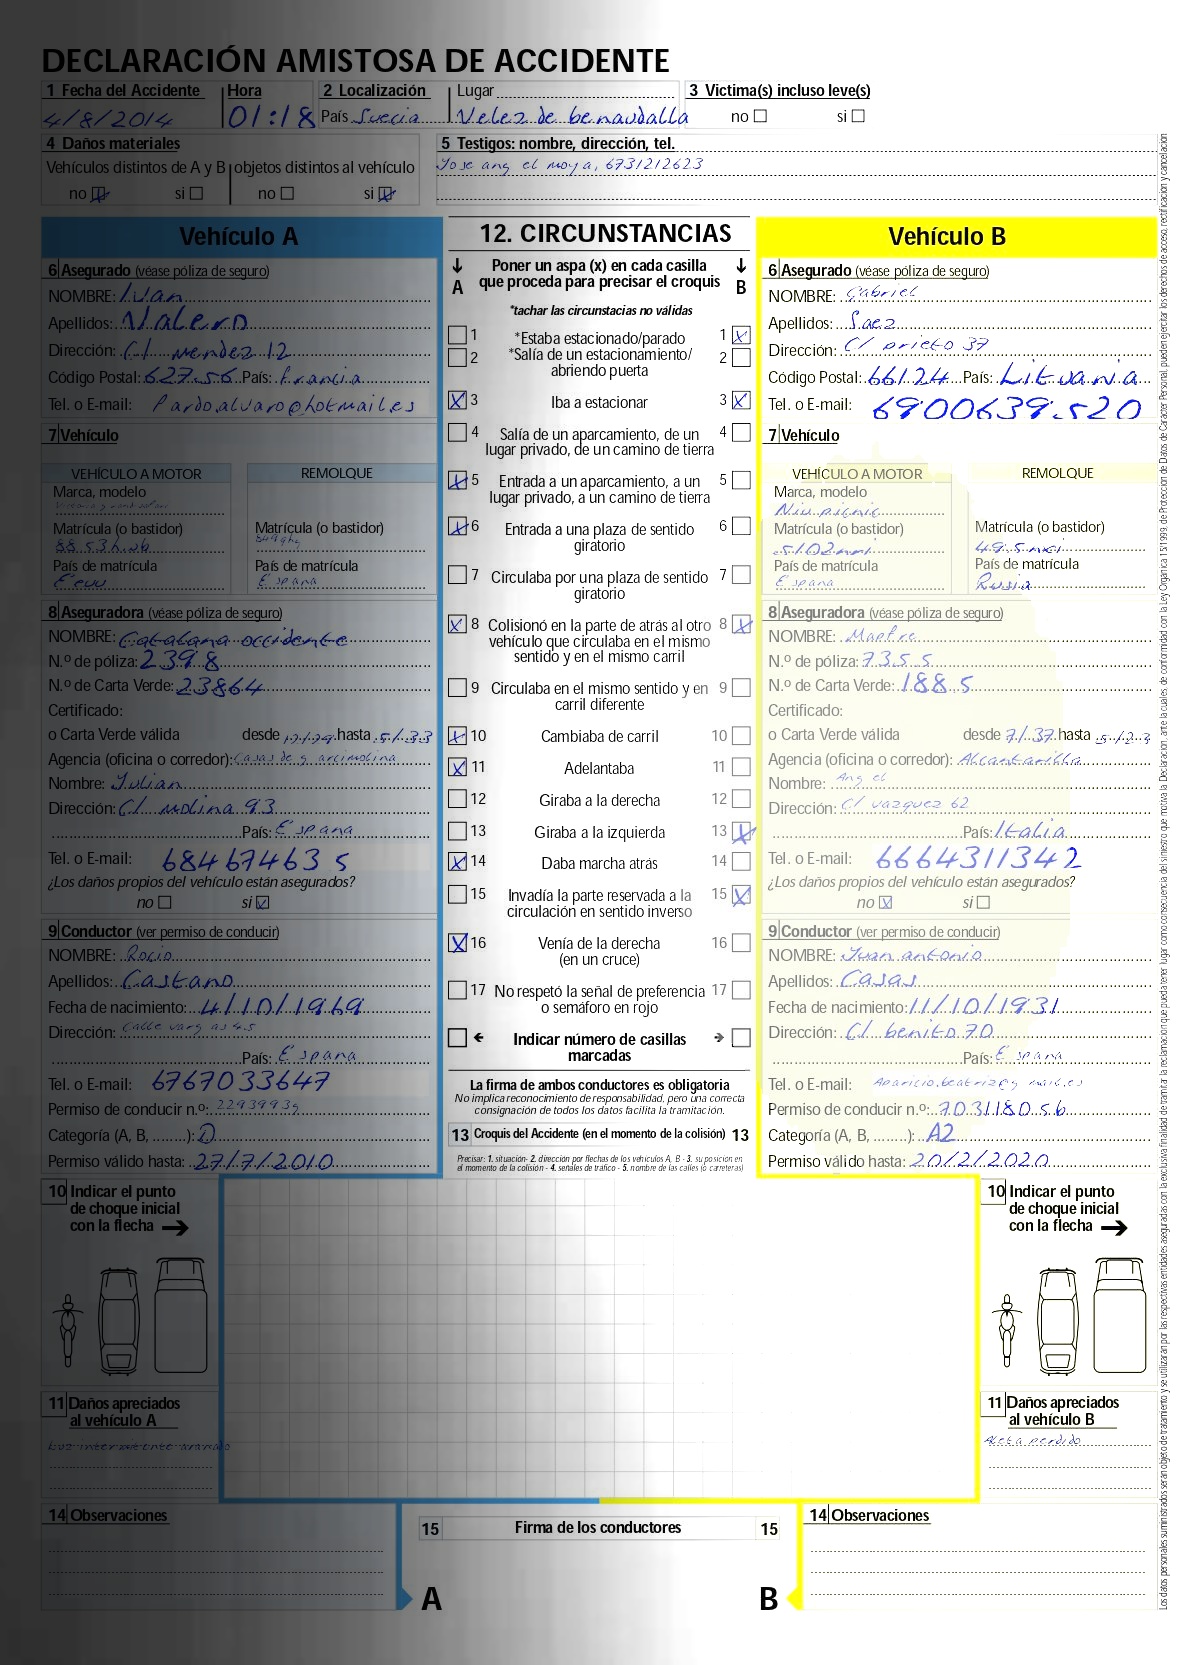 DECLARACIÓN AMISTOSA DE ACCIDENTE
1 Fecha del Accidente Hora 2 Localización Lugar 3 Victima(s) incluso leve(s)
4/8/2014 01:18 País Suecia Velez de benaudalla no si
4 Daños materiales
Vehículos distintos de A y B objetos distintos al vehículo
no si no si
5 Testigos: nombre, dirección, tel.
Jose angel moya, 6731212623
Vehículo A
6 Asegurado (véase póliza de seguro)
NOMBRE: Ivan
Apellidos: Valero
Dirección: C/ mendez 12
Código Postal: 62756 País: Francia
Tel. o E-mail: Pardo.alvaro@hotmail.es
7 Vehículo
VEHÍCULO A MOTOR REMOLQUE
Marca, modelo
Matrícula (o bastidor) Matrícula (o bastidor)
País de matrícula País de matrícula
Eeuu Espana
8 Aseguradora (véase póliza de seguro)
NOMBRE: Catalana occidente
N.º de póliza: 2398
N.º de Carta Verde: 23864
Certificado:
o Carta Verde válida desde hasta 5/.33
Agencia (oficina o corredor):
Nombre: Julian
Dirección: C/ molina 93
País: Espana
Tel. o E-mail: 684674635
¿Los daños propios del vehículo están asegurados?
no si
9 Conductor (ver permiso de conducir)
NOMBRE: Rocio
Apellidos: Castano
Fecha de nacimiento: 4/10/1969
Dirección: Calle vargas 45
País: Espana
Tel. o E-mail: 6767033647
Permiso de conducir n.º:
Categoría (A, B, ........): D
Permiso válido hasta: 27/7/2010
10 Indicar el punto
de choque inicial
con la flecha
11 Daños apreciados
al vehículo A
Luz intermitente aranado
14 Observaciones
12. CIRCUNSTANCIAS
A B
Poner un aspa (x) en cada casilla
que proceda para precisar el croquis
*tachar las circunstacias no válidas
1 *Estaba estacionado/parado 1
2 *Salía de un estacionamiento/ 2
abriendo puerta
3 Iba a estacionar 3
4 Salía de un aparcamiento, de un 4
lugar privado, de un camino de tierra
5 Entrada a un aparcamiento, a un 5
lugar privado, a un camino de tierra
6 Entrada a una plaza de sentido 6
giratorio
7 Circulaba por una plaza de sentido 7
giratorio
8 Colisionó en la parte de atrás al otro 8
vehículo que circulaba en el mismo
sentido y en el mismo carril
9 Circulaba en el mismo sentido y en 9
carril diferente
10 Cambiaba de carril 10
11 Adelantaba 11
12 Giraba a la derecha 12
13 Giraba a la izquierda 13
14 Daba marcha atrás 14
15 Invadía la parte reservada a la 15
circulación en sentido inverso
16 Venía de la derecha 16
(en un cruce)
17 No respetó la señal de preferencia 17
o semáforo en rojo
Indicar número de casillas
marcadas
La firma de ambos conductores es obligatoria
No implica reconocimiento de responsabilidad, pero una correcta
consignación de todos los datos facilita la tramitación.
13 Croquis del Accidente (en el momento de la colisión) 13
Precisar: 1. situación- 2. dirección por flechas de los vehículos A, B - 3. su posición en
el momento de la colisión - 4. señales de tráfico - 5. nombre de las calles (o carreteras)
15 Firma de los conductores 15
A B
Vehículo B
6 Asegurado (véase póliza de seguro)
NOMBRE: Gabriel
Apellidos: Saez
Dirección: C/ prieto 37
Código Postal: 66124 País: Lituania
Tel. o E-mail: 6900639520
7 Vehículo
VEHÍCULO A MOTOR REMOLQUE
Marca, modelo
Niu picnic
Matrícula (o bastidor) Matrícula (o bastidor)
País de matrícula País de matrícula
Espana Rusia
8 Aseguradora (véase póliza de seguro)
NOMBRE: Mapfre
N.º de póliza: 7355
N.º de Carta Verde: 1885
Certificado:
o Carta Verde válida desde 7/.37 hasta
Agencia (oficina o corredor): Alcantarilla
Nombre: Angel
Dirección: C/ vazquez 62
País: Italia
Tel. o E-mail: 6664311342
¿Los daños propios del vehículo están asegurados?
no si
9 Conductor (ver permiso de conducir)
NOMBRE: Juan antonio
Apellidos: Casas
Fecha de nacimiento: 11/10/1931
Dirección: C/ benito 70
País: Espana
Tel. o E-mail: Aparicio.beatriz@gmail.es
Permiso de conducir n.º: 70311805b
Categoría (A, B, ........): A2
Permiso válido hasta: 20/2/2020
10 Indicar el punto
de choque inicial
con la flecha
11 Daños apreciados
al vehículo B
Aleta perdido
14 Observaciones